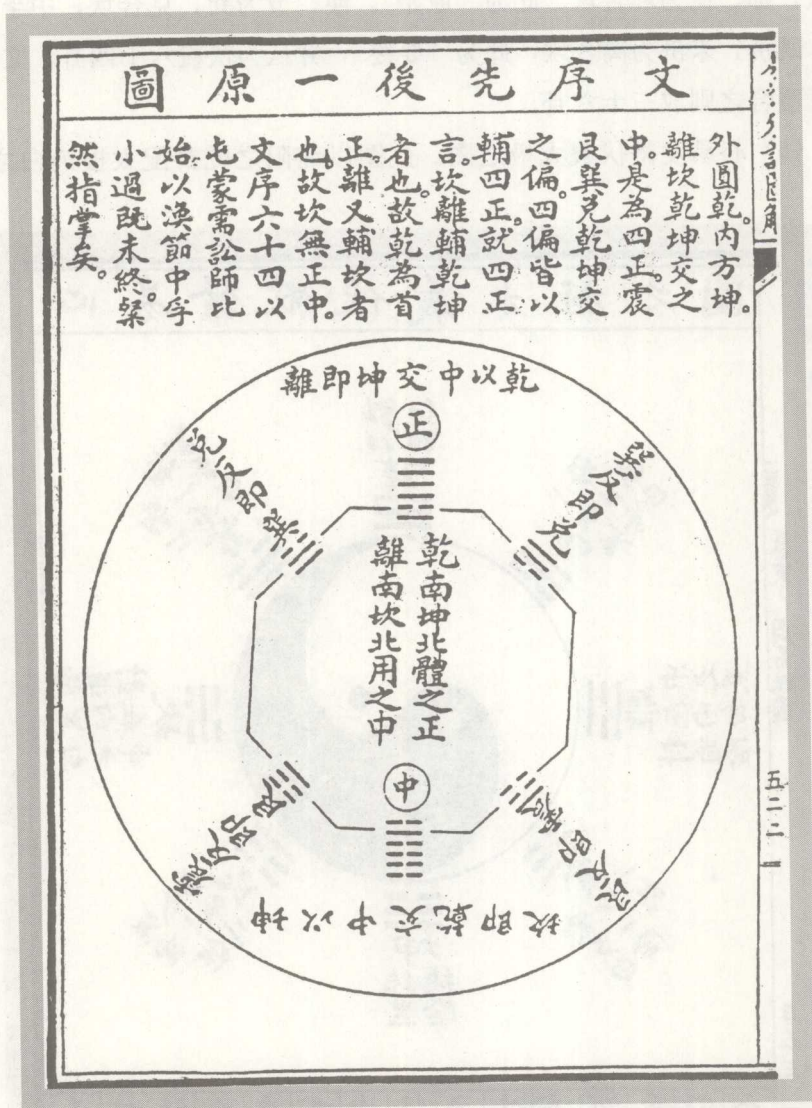 文序先後一原圖
外圓乾。內方坤。
離坎乾坤交之
中。是為四正。震
艮巽兌乾坤交
之偏。四偏皆以
輔四正。就四正
言。坎離輔乾坤
者也。故乾為首
正。離又輔坎者
也。故坎無正中。
文序六十四以
屯蒙需訟師比
始。以渙節中孚
小過既未終。粲
然指掌矣。
乾以中交坤即離
正
巽反即兌
兌反即巽
乾南坤北體之正
離南坎北用之中
中
震反即艮
艮反即震
坤以中交乾即坎
五二二